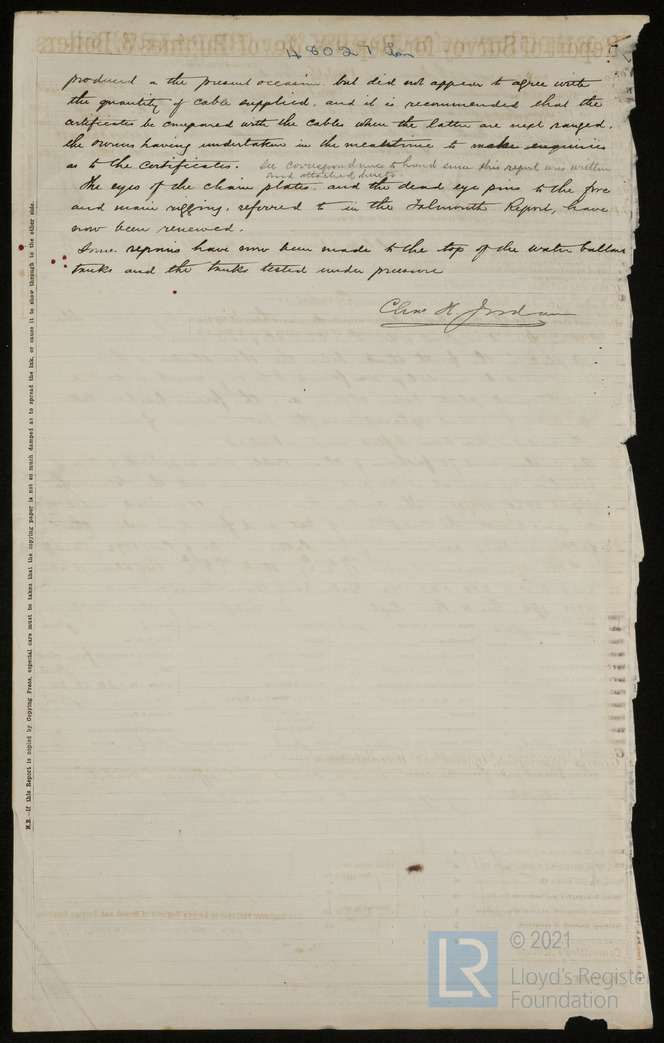 48027 Lon
produced on the present occasion, but did not appear to agree with
the quantity of cable supplied, and it is recommended that the
certificates be compared with the cables when the latter are next ranged,
the owners having undertaken in the meantime to make enquiries
as to the certificates. See correspondence to hand since this report was written
and attached hereto.
The eyes of the chain plates, and the dead eye pins to the fore
and main rigging, referred to in the Falmouth Report, have
now been renewed.
Some repairs have now been made to the top of the water ballast
tanks and the tanks tested under pressure
Chas H. Jordan
N.B.—If this Report is copied by Copying Press, especial care must be taken that the copying paper is not so much damped as to spread the ink, or cause it to show through to the other side.
© 2021
LR
Lloyd's Register
Foundation